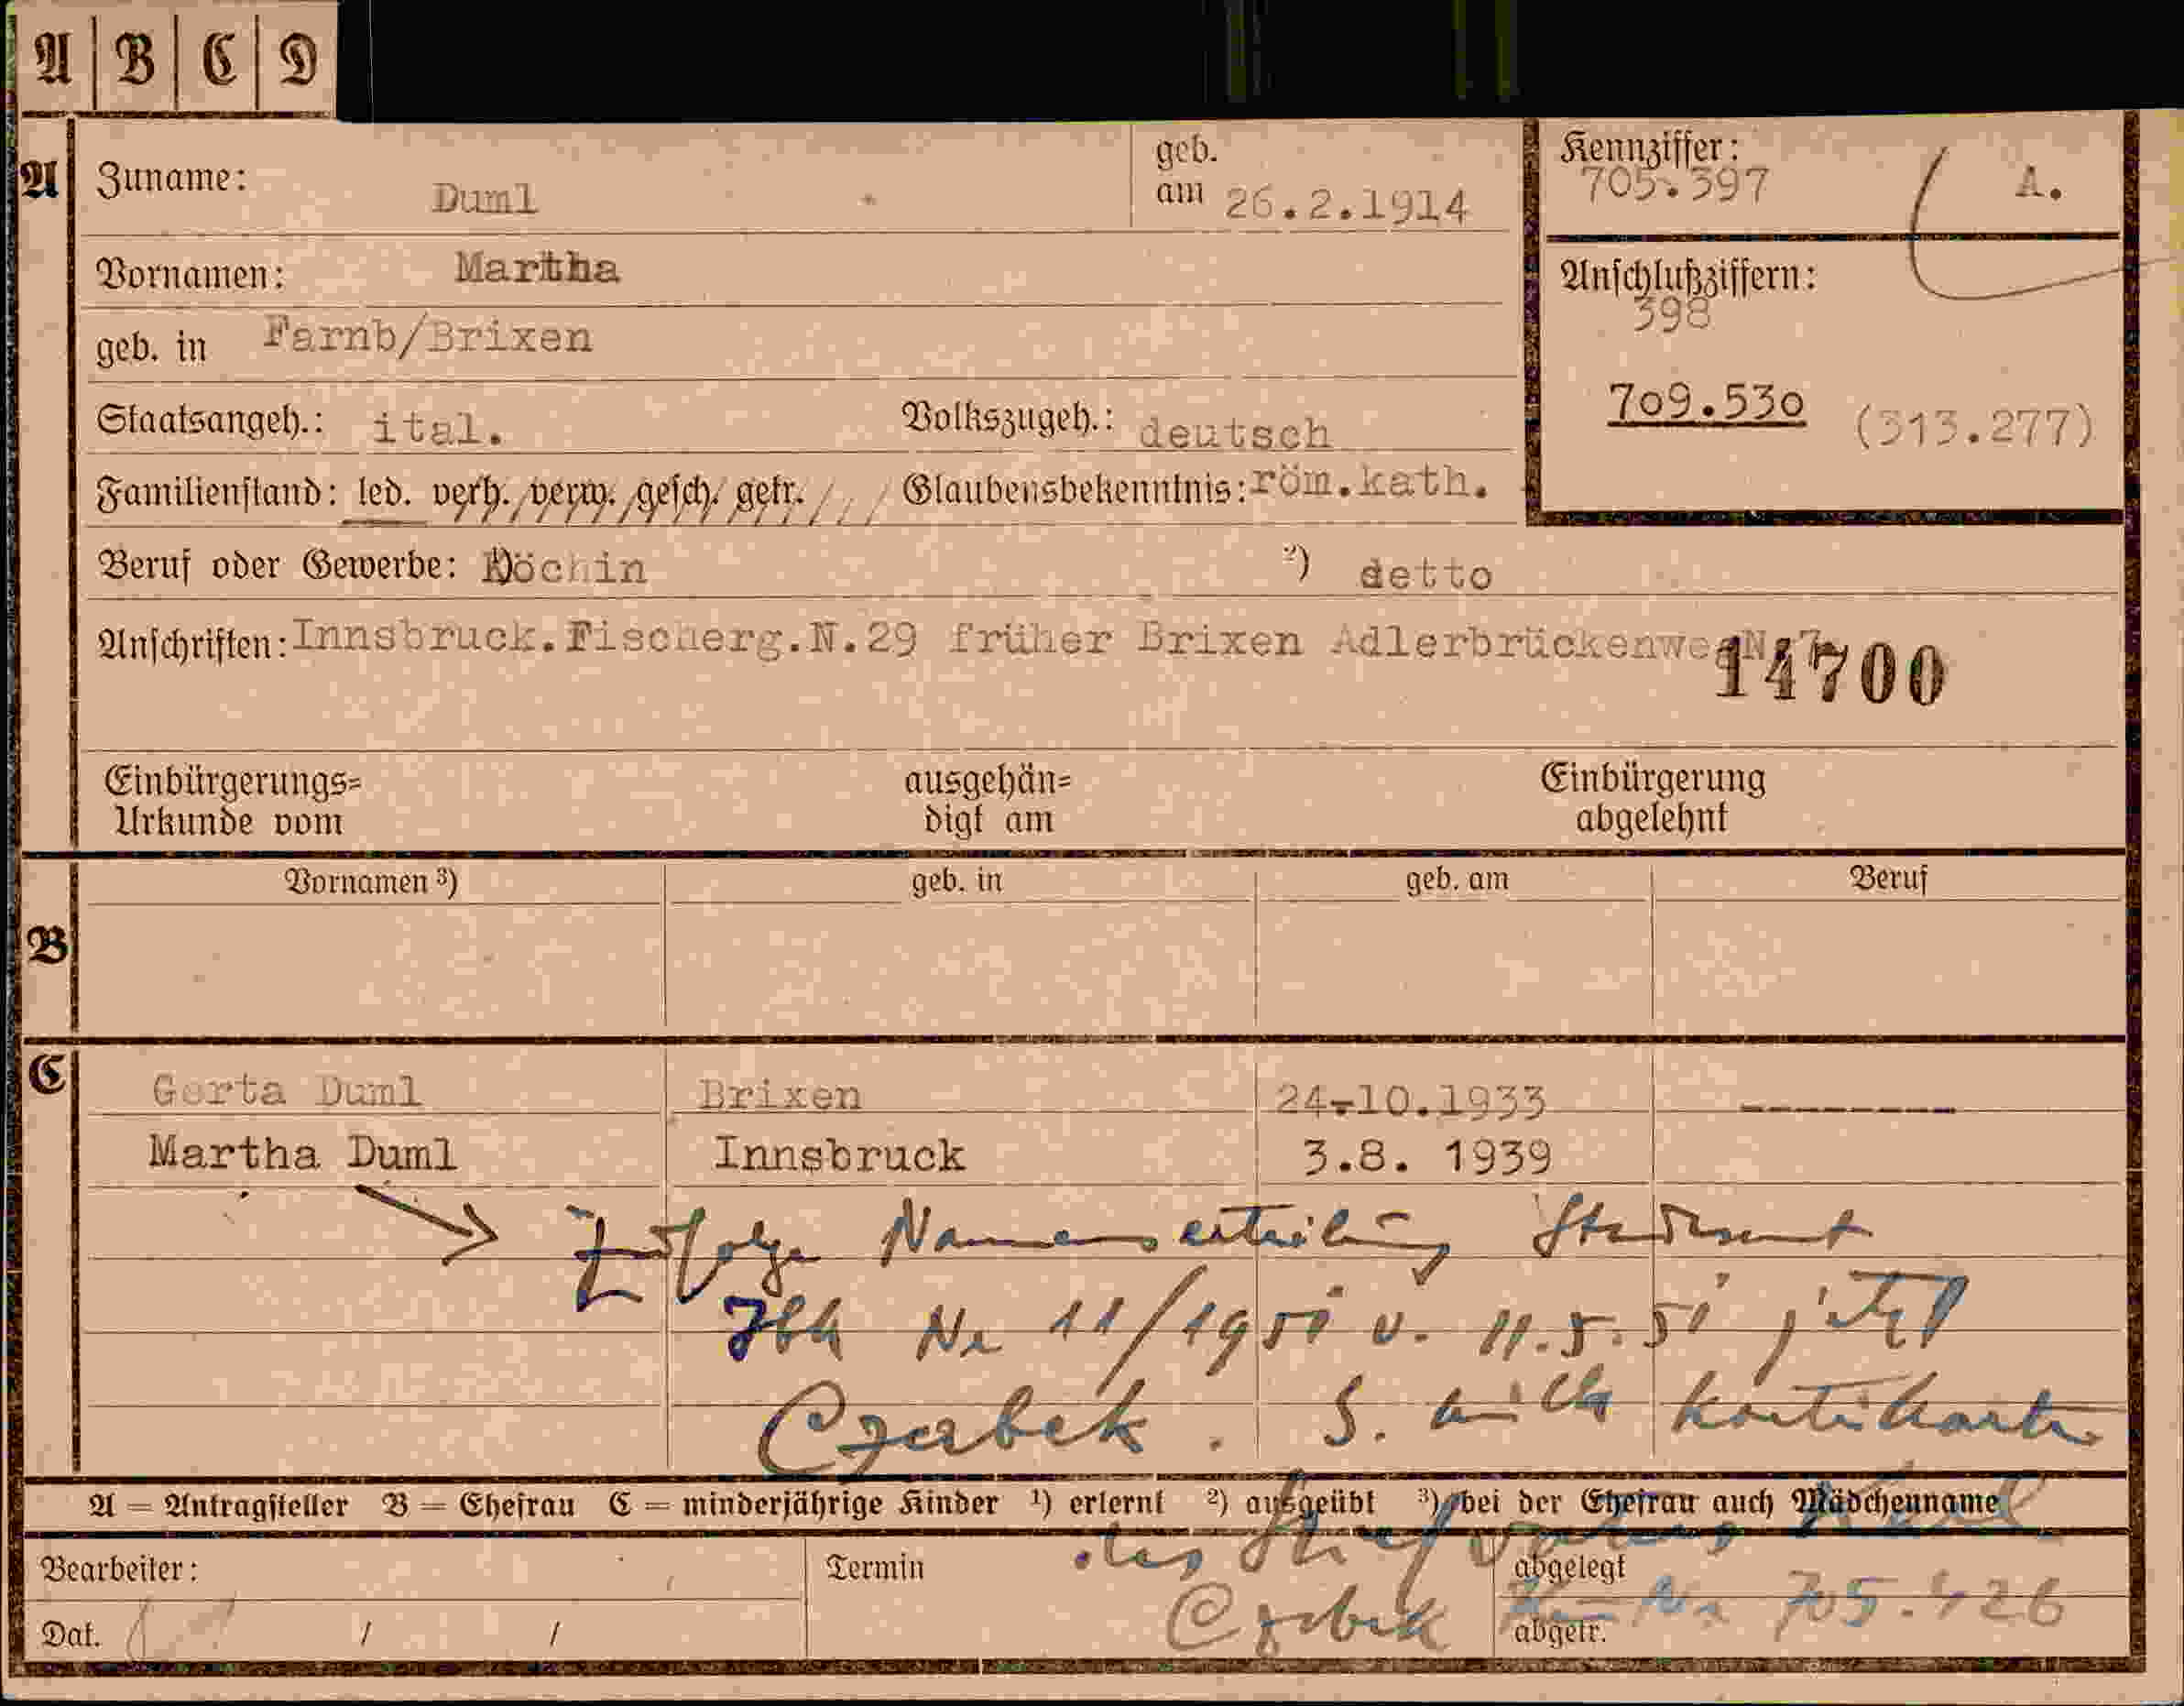 A B C D
A Zuname: Duml geb. am 26.2.1914
Kennziffer: 705.397 A.
Vornamen: Martha
Anschlußziffern: 398
geb. in Farnb/Brixen
709.530 (313.277)
Staatsangeh.: ital. Volkszugeh.: deutsch
Familienstand: led. verh. verw. gesch. getr. Glaubensbekenntnis: röm.kath.
Beruf oder Gewerbe: Köchin ²) detto
Anschriften: Innsbruck.Fischerg.N.29 früher Brixen Adlerbrückenweg N 7
14700
Einbürgerungs= ausgehän= Einbürgerung
Urkunde vom digt am abgelehnt
Vornamen ³) geb. in geb. am Beruf
B
C
Gerta Duml Brixen 24-10.1933 ----------
Martha Duml Innsbruck 3.8. 1939
zufolge Namenserteilung Standesamt
Ibk Nr 11/1951 v. 11.5.51 jetzt
Czerbek. S. auch Karteikarte
A = Antragsteller B = Ehefrau C = minderjährige Kinder ¹) erlernt ²) ausgeübt ³) bei der Ehefrau auch Mädchenname
des Stiefvaters Karl
Bearbeiter: Termin abgelegt
Czerbek Nr 705.426
Dat. / / abgetr.